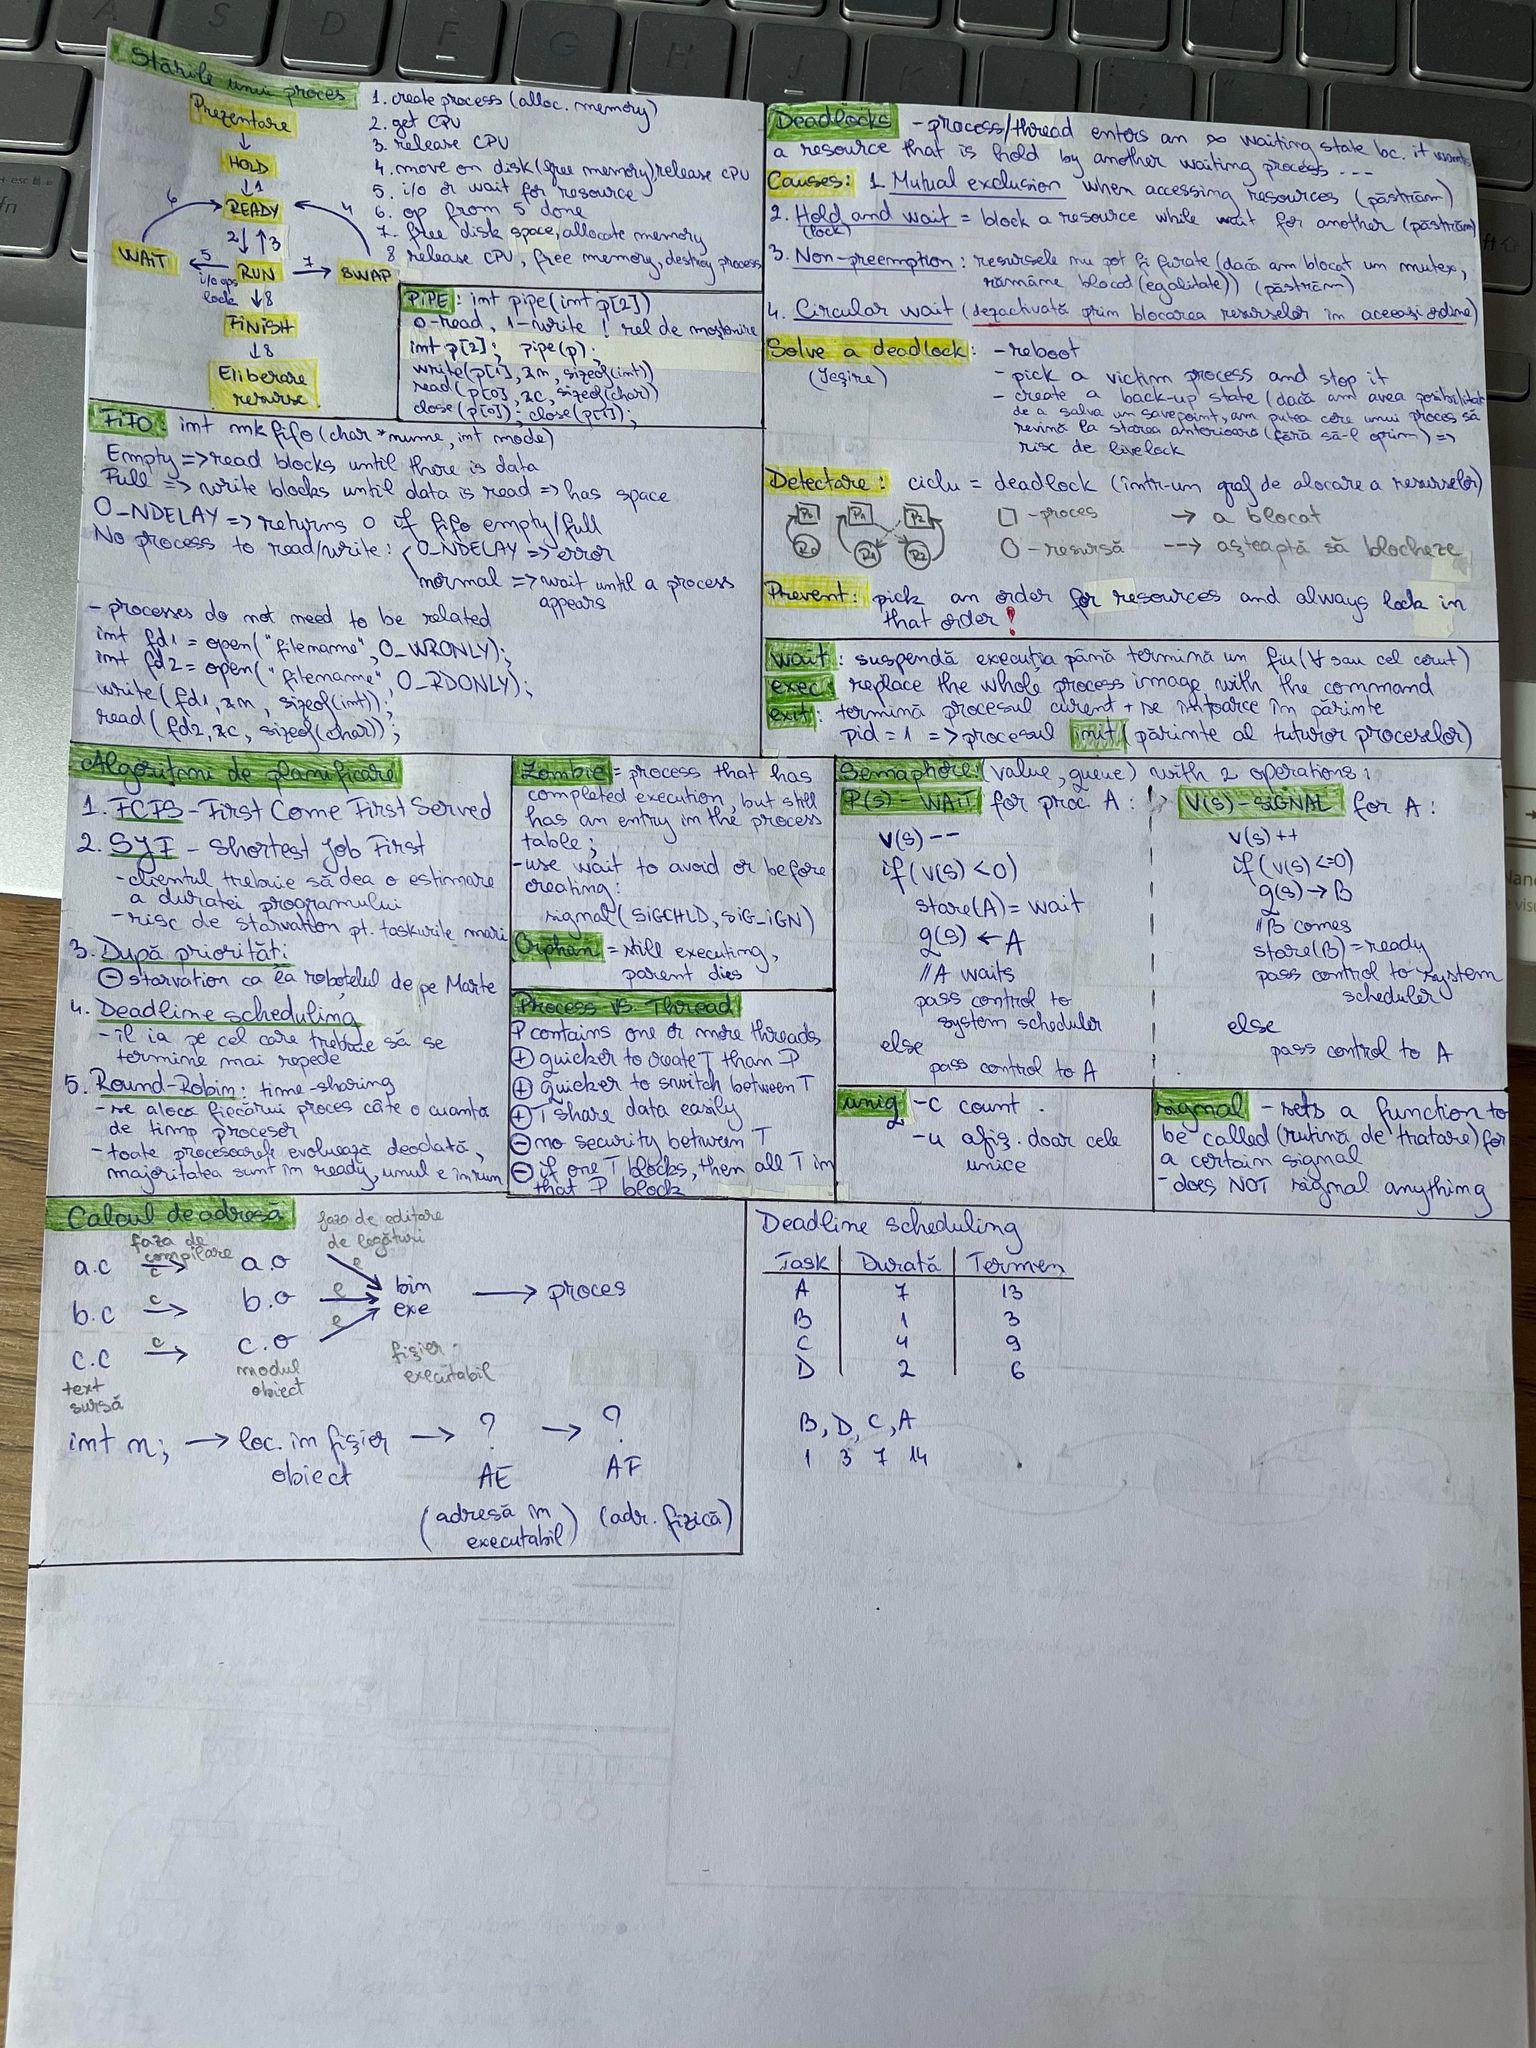 Stările unui proces
Prezentare
HOLD
1
READY
6
4
2 3
WAIT
5
RUN
7
SWAP
i/o ops
lock
8
FINISH
8
Eliberare
resurse
1. create process (alloc. memory)
2. get CPU
3. release CPU
4. move on disk (free memory), release CPU
5. i/o or wait for resource
6. op from 5 done
7. free disk space, allocate memory
8 release CPU, free memory, destroy process
PIPE: int pipe(int p[2])
0-read, 1-write ! rel de moștenire
int p[2]; pipe(p);
write(p[1], &n, sizeof(int))
read(p[0], &c, sizeof(char))
close(p[0]); close(p[1]);
FIFO: int mkfifo(char *nume, int mode)
Empty => read blocks until there is data
Full => write blocks until data is read => has space
O_NDELAY => returns 0 if fifo empty/full
No process to read/write: O_NDELAY => error
normal => wait until a process
appears
- processes do not need to be related
int fd1 = open("filename", O_WRONLY);
int fd2 = open("filename", O_RDONLY);
write(fd1, &n, sizeof(int));
read(fd2, &c, sizeof(char));
Deadlocks - process/thread enters an ∞ waiting state bc. it wants
a resource that is hold by another waiting process ---
Causes: 1. Mutual exclusion when accessing resources (păstrăm)
2. Hold and wait = block a resource while wait for another (păstrăm)
(lock)
3. Non-preemption: resursele nu pot fi furate (dacă am blocat un mutex,
rămâne blocat (egalitate)) (păstrăm)
4. Circular wait (dezactivată prin blocarea resurselor în aceeași ordine)
Solve a deadlock: - reboot
(Ieșire)
- pick a victim process and stop it
- create a back-up state (dacă am avea posibilitat
de a salva un savepoint, am putea cere unui proces să
revină la starea anterioară (fără să-l oprim) =>
risc de livelock
Detectare: ciclu = deadlock (într-un graf de alocare a resurselor)
P0 P1 P2
R0 R1 R2
□ - proces → a blocat
O - resursă --> așteaptă să blocheze
Prevent: pick an order for resources and always lock in
that order!
wait: suspendă execuția până termină un fiu (∀ sau cel cerut)
exec: replace the whole process image with the command
exit: termină procesul curent + se întoarce în părinte
pid = 1 => procesul init (părinte al tuturor proceselor)
Algoritmi de planificare
1. FCFS - First Come First Served
2. SJF - Shortest Job First
- clientul trebuie să dea o estimare
a duratei programului
- risc de starvation pt. taskurile mari
3. După priorități:
⊖ starvation ca la roboțelul de pe Marte
4. Deadline scheduling
- îl ia pe cel care trebuie să se
termine mai repede
5. Round-Robin: time-sharing
- se alocă fiecărui proces câte o cuantă
de timp procesor
- toate procesoarele evoluează deodată,
majoritatea sunt în ready, unul e în run
Zombie = process that has
completed execution, but still
has an entry in the process
table;
- use wait to avoid or before
creating:
signal(SIGCHLD, SIG_IGN)
Orphan = still executing,
parent dies
Process vs. Thread
P contains one or more threads
⊕ quicker to create T than P
⊕ quicker to switch between T
⊕ T share data easily
⊖ no security between T
⊖ if one T blocks, then all T in
that P block
Semaphore: (value, queue) with 2 operations:
P(s) - WAIT for proc A:
v(s) --
if (v(s) < 0)
stare(A) = wait
q(s) ← A
// A waits
pass control to
system scheduler
else
pass control to A
V(s) - SIGNAL for A:
v(s) ++
if (v(s) <= 0)
q(s) → B
// B comes
stare(B) = ready
pass control to system
scheduler
else
pass control to A
uniq -c count.
-u afiș. doar cele
unice
signal - sets a function to
be called (rutină de tratare) for
a certain signal
- does NOT signal anything
Calcul de adresă
faza de
compilare
faza de editare
de legături
a.c c→ a.o e
b.c c→ b.o e→ bin
exe → proces
c.c c→ c.o e
text
sursă
modul
obiect
fișier
executabil
int n; → loc. în fișier
obiect → ? → ?
AE AF
(adresă în
executabil) (adr. fizică)
Deadline scheduling
Task Durată Termen
A 7 13
B 1 3
C 4 9
D 2 6
B, D, C, A
1 3 7 14